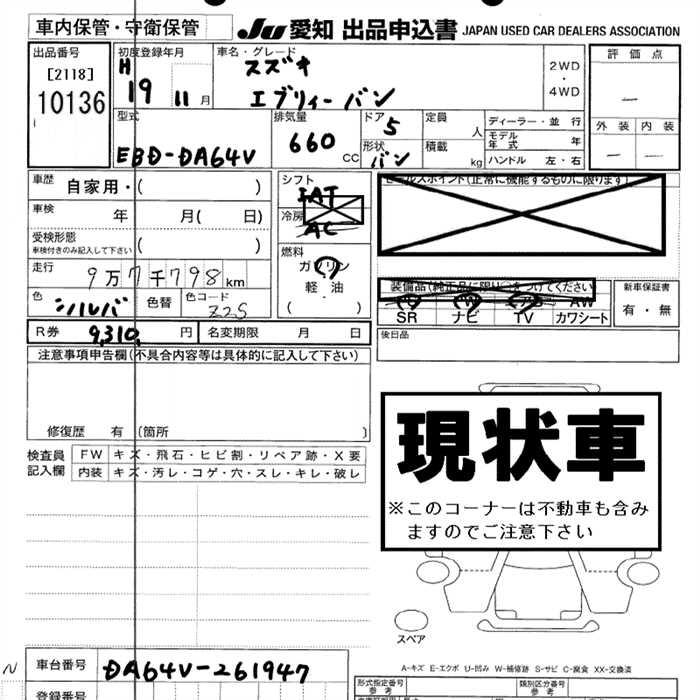 車内保管・守衛保管
JU 愛知 出品申込書 JAPAN USED CAR DEALERS ASSOCIATION
出品番号
[2118]
10136
初度登録年月
H
19 11 月
車名・グレード
スズキ
エブリィーバン
2WD
・
4WD
評価点
外装 内装
型式
EBD-DA64V
排気量
660 CC
ドア 5
形状 バン
定員 人
積載 kg
ディーラー・並行
モデル年式 年
ハンドル 左・右
車歴 自家用・( )
車検 年 月( 日)
受検形態
車検付きのみ記入して下さい ( )
走行 9万7千798km
色 シルバ 色替 色コード Z2S
シフト
冷房
AC
燃料
ガソリン
軽・油
( )
セールスポイント(正常に機能するものに限ります)
装備品(純正品に限り○をつけてください)
SR ナビ TV AW
カワシート
新車保証書
有・無
R券 9,310 円 名変期限 月 日
後日品
注意事項申告欄(不具合内容等は具体的に記入して下さい)
修復歴 有 (箇所 )
検査員
記入欄
FW キズ・飛石・ヒビ割・リペア跡・X要
内装 キズ・汚レ・コゲ・穴・スレ・キレ・破レ
現状車
※このコーナーは不動車も含み
ますのでご注意下さい
スペア
A-キズ E-エクボ U-凹み W-補修跡 S-サビ C-腐食 XX-交換済
N
車台番号 DA64V-261947
登録番号
形式指定番号
参考
類別区分番号
参考